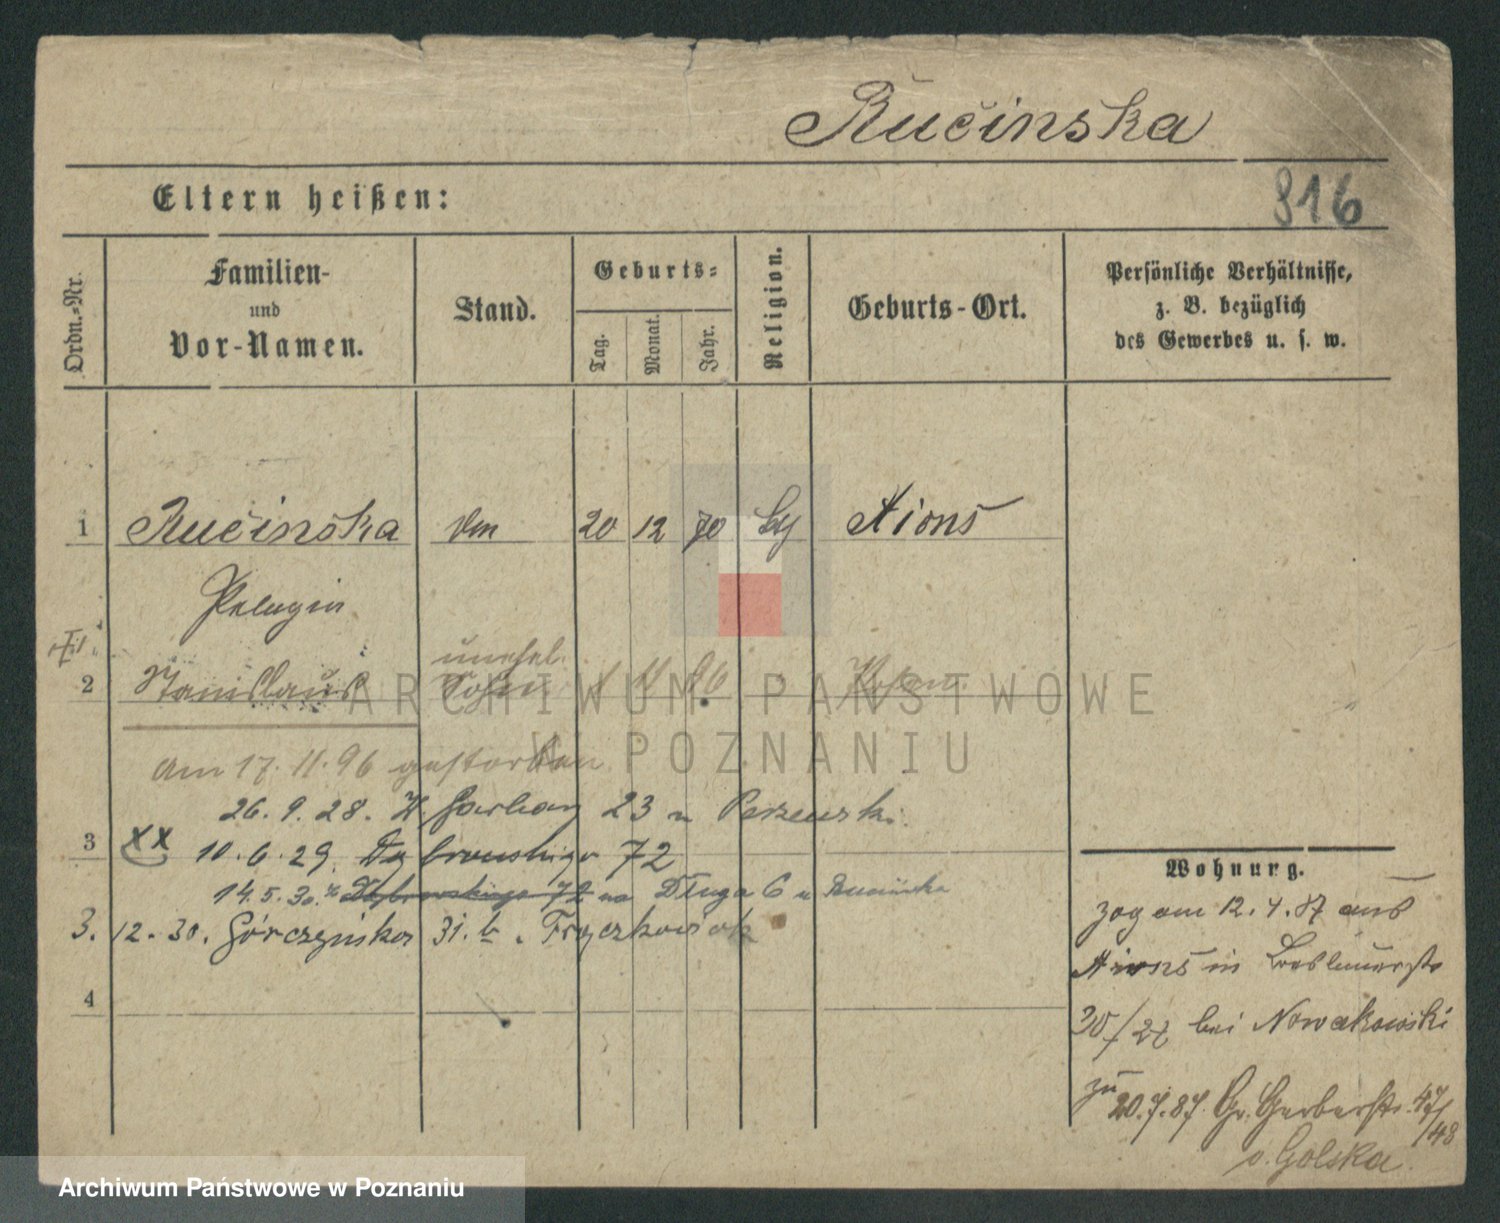 Ručinska
Eltern heißen:
916
Ordn.-Nr.
Familien-
und
Vor-Namen.
Stand.
Geburts-
Tag.
Monat.
Jahr.
Religion.
Geburts-Ort.
Persönliche Verhältnisse,
z. B. bezüglich
des Gewerbes u. s. w.
1 Ručinska 20 12 70 Xions
Pelagia
unehel.
2 Stanislaus Sohn 1 11 96 Posen
Am 17. 11. 96 gestorben
26. 9. 28. W. Garbary 23 u Perzewski
3 XX 10. 6. 29. Dąbrowskiego 72
14. 5. 30. z Dąbrowskiego 72 na Długa 6 u Rucińska
3. 12. 30. Górczyńska 31. b. Frąckowiak
4
Wohnung.
zog am 12. 4. 87 aus
Xions in Breslauerstr
30/27 bei Nowakowski
zu 20. 7. 87. Gr. Gerberstr. 47/48
v. Golska.
ARCHIWUM PAŃSTWOWE
W POZNANIU
Archiwum Państwowe w Poznaniu